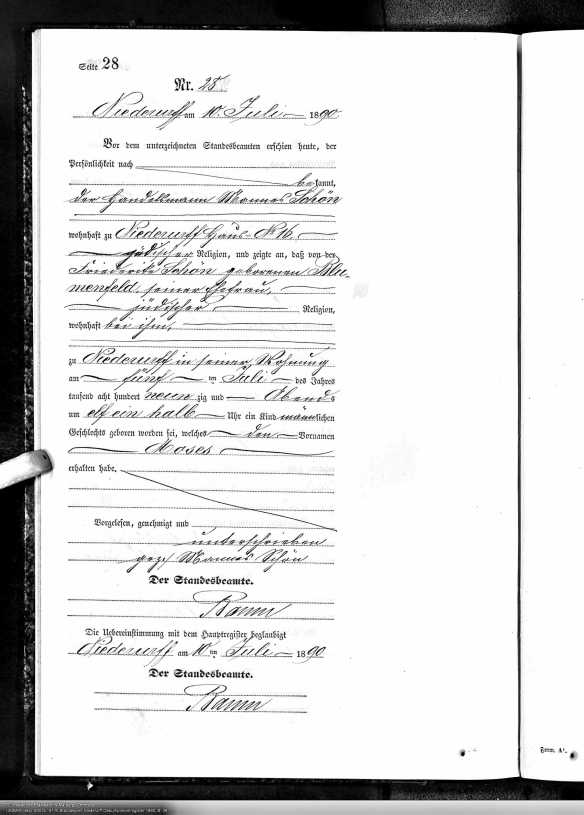 Seite 28
Nr. 28
Niederurff am 10. Juli 1890
Vor dem unterzeichneten Standesbeamten erschien heute, der
Persönlichkeit nach
bekannt,
der Handelsmann Mannes Schön
wohnhaft zu Niederurff Haus-No 16,
jüdischer Religion, und zeigte an, daß von der
Friederike Schön geborenen Blu-
menfeld, seiner Ehefrau,
jüdischer Religion,
wohnhaft bei ihm,
zu Niederurff in seiner Wohnung
am fünf ten Juli des Jahres
tausend acht hundert neun zig und Abends
um elf ein halb Uhr ein Kind männlichen
Geschlechts geboren worden sei, welches den Vornamen
Moses
erhalten habe.
Vorgelesen, genehmigt und
unterschrieben
gez. Mannes Schön
Der Standesbeamte.
Die Uebereinstimmung mit dem Hauptregister beglaubigt
Niederurff am 10 ten Juli 1890
Der Standesbeamte.
Form. A¹.